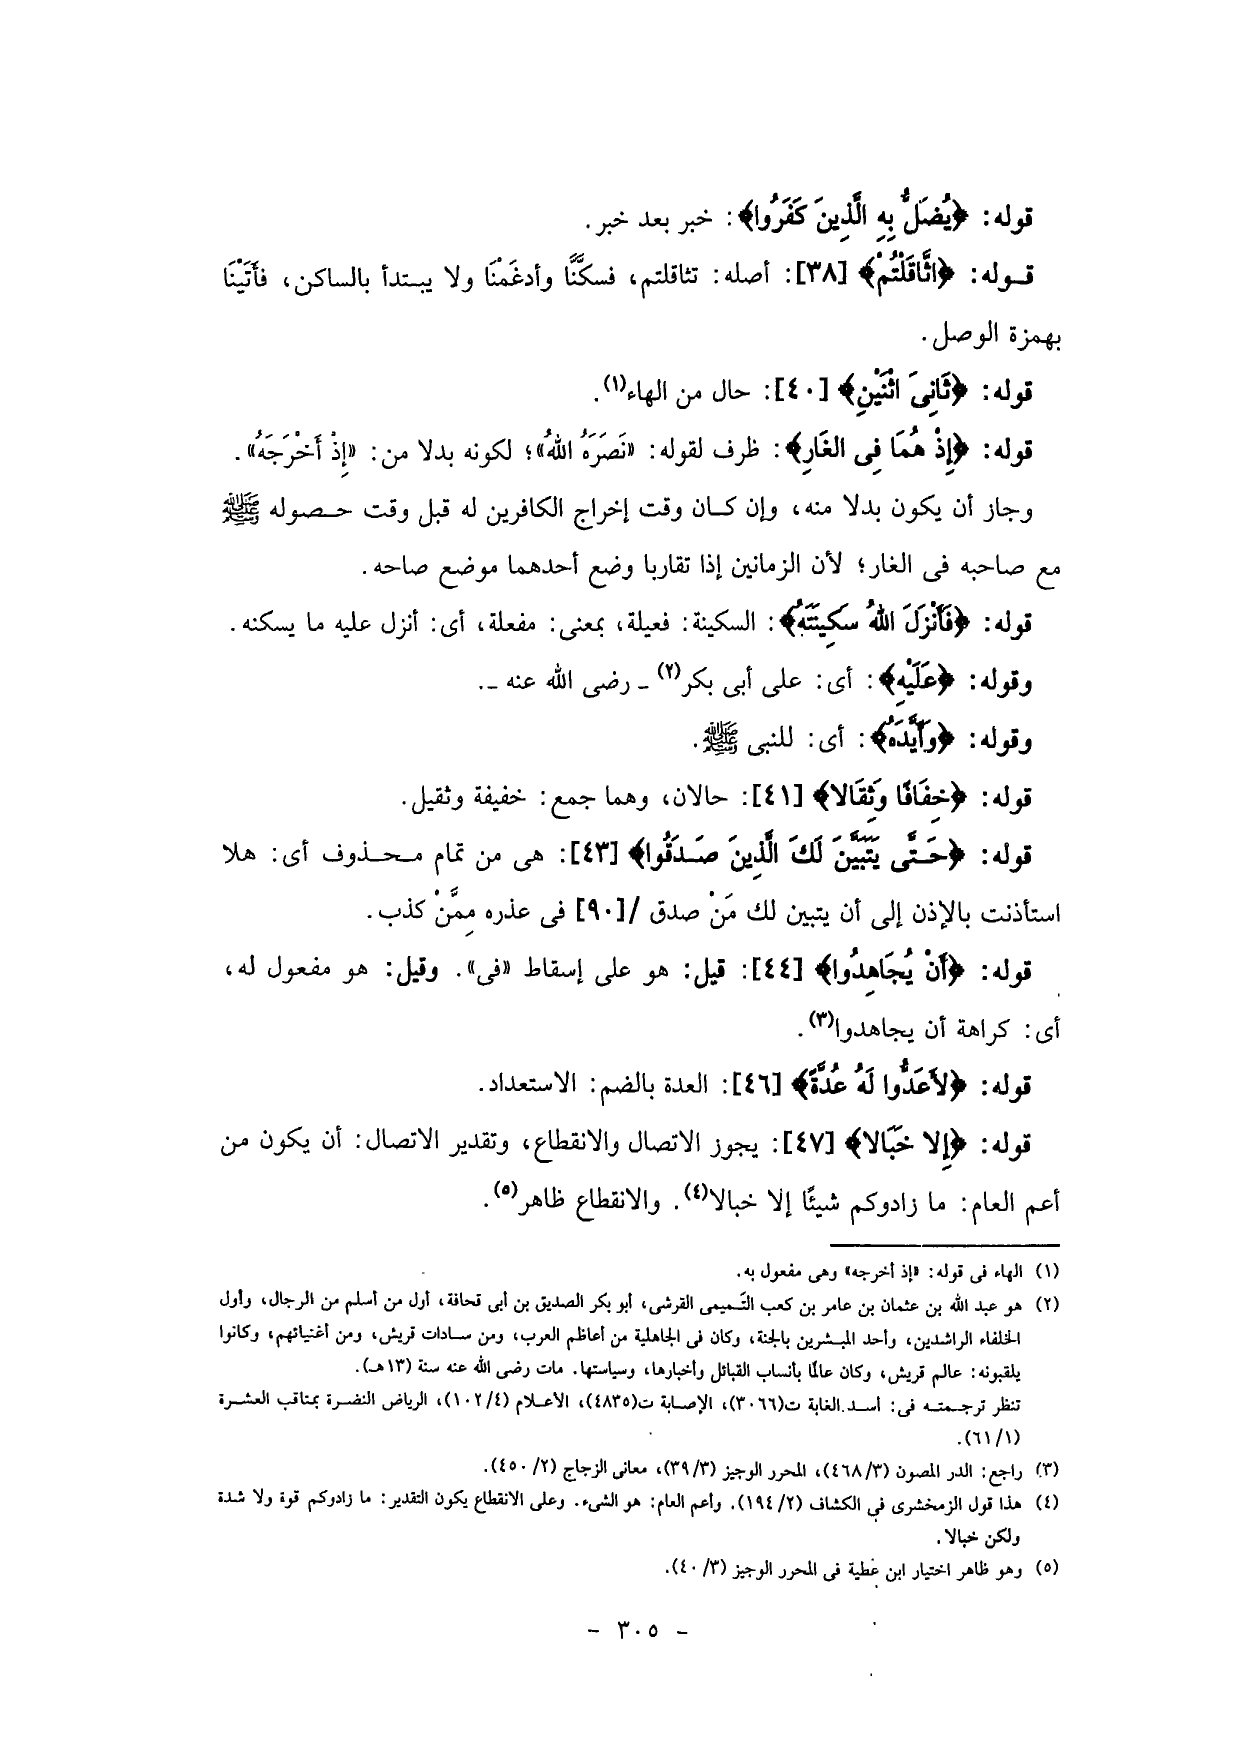 قوله: ﴿يُضَلُّ بِهِ الَّذِينَ كَفَرُوا﴾: خبر بعد خبر.
قوله: ﴿اثَّاقَلْتُمْ﴾ [٣٨]: أصله: تثاقلتم، فسكَّنَّا وأدغَمْنَا ولا يبتدأ بالساكن، فأتَيْنَا
بهمزة الوصل.
قوله: ﴿ثَانِىَ اثْنَيْنِ﴾ [٤٠]: حال من الهاء(١).
قوله: ﴿إِذْ هُمَا فِى الغَارِ﴾: ظرف لقوله: «نَصَرَهُ اللهُ»؛ لكونه بدلا من: «إِذْ أَخْرَجَهُ».
وجاز أن يكون بدلا منه، وإن كان وقت إخراج الكافرين له قبل وقت حصوله ﷺ
مع صاحبه فى الغار؛ لأن الزمانين إذا تقاربا وضع أحدهما موضع صاحه.
قوله: ﴿فَأَنْزَلَ اللهُ سَكِينَتَهُ﴾: السكينة: فعيلة، بمعنى: مفعلة، أى: أنزل عليه ما يسكنه.
وقوله: ﴿عَلَيْهِ﴾: أى: على أبى بكر(٢) ـ رضى الله عنه ـ.
وقوله: ﴿وَأَيَّدَهُ﴾: أى: للنبى ﷺ.
قوله: ﴿خِفَافًا وَثِقَالا﴾ [٤١]: حالان، وهما جمع: خفيفة وثقيل.
قوله: ﴿حَتَّى يَتَبَيَّنَ لَكَ الَّذِينَ صَدَقُوا﴾ [٤٣]: هى من تمام محذوف أى: هلا
استأذنت بالإذن إلى أن يتبين لك مَنْ صدق /[٩٠] فى عذره مِمَّنْ كذب.
قوله: ﴿أَنْ يُجَاهِدُوا﴾ [٤٤]: قيل: هو على إسقاط «فى». وقيل: هو مفعول له،
أى: كراهة أن يجاهدوا(٣).
قوله: ﴿لأَعَدُّوا لَهُ عُدَّةً﴾ [٤٦]: العدة بالضم: الاستعداد.
قوله: ﴿إِلا خَبَالا﴾ [٤٧]: يجوز الاتصال والانقطاع، وتقدير الاتصال: أن يكون من
أعم العام: ما زادوكم شيئًا إلا خبالا(٤). والانقطاع ظاهر(٥).
(١) الهاء فى قوله: «إذ أخرجه» وهى مفعول به.
(٢) هو عبد الله بن عثمان بن عامر بن كعب التَّميمى القرشى، أبو بكر الصديق بن أبى قحافة، أول من أسلم من الرجال، وأول
الخلفاء الراشدين، وأحد المبشرين بالجنة، وكان فى الجاهلية من أعاظم العرب، ومن سادات قريش، ومن أغنيائهم، وكانوا
يلقبونه: عالم قريش، وكان عالمًا بأنساب القبائل وأخبارها، وسياستها. مات رضى الله عنه سنة (١٣هـ).
تنظر ترجمته فى: أسد الغابة ت(٣٠٦٦)، الإصابة ت(٤٨٣٥)، الأعلام (١٠٢/٤)، الرياض النضرة بمناقب العشرة
(٦١/١).
(٣) راجع: الدر المصون (٤٦٨/٣)، المحرر الوجيز (٣٩/٣)، معانى الزجاج (٤٥٠/٢).
(٤) هذا قول الزمخشرى فى الكشاف (١٩٤/٢). وأعم العام: هو الشىء. وعلى الانقطاع يكون التقدير: ما زادوكم قوة ولا شدة
ولكن خبالا.
(٥) وهو ظاهر اختيار ابن عطية فى المحرر الوجيز (٤٠/٣).
- ٣٠٥ -